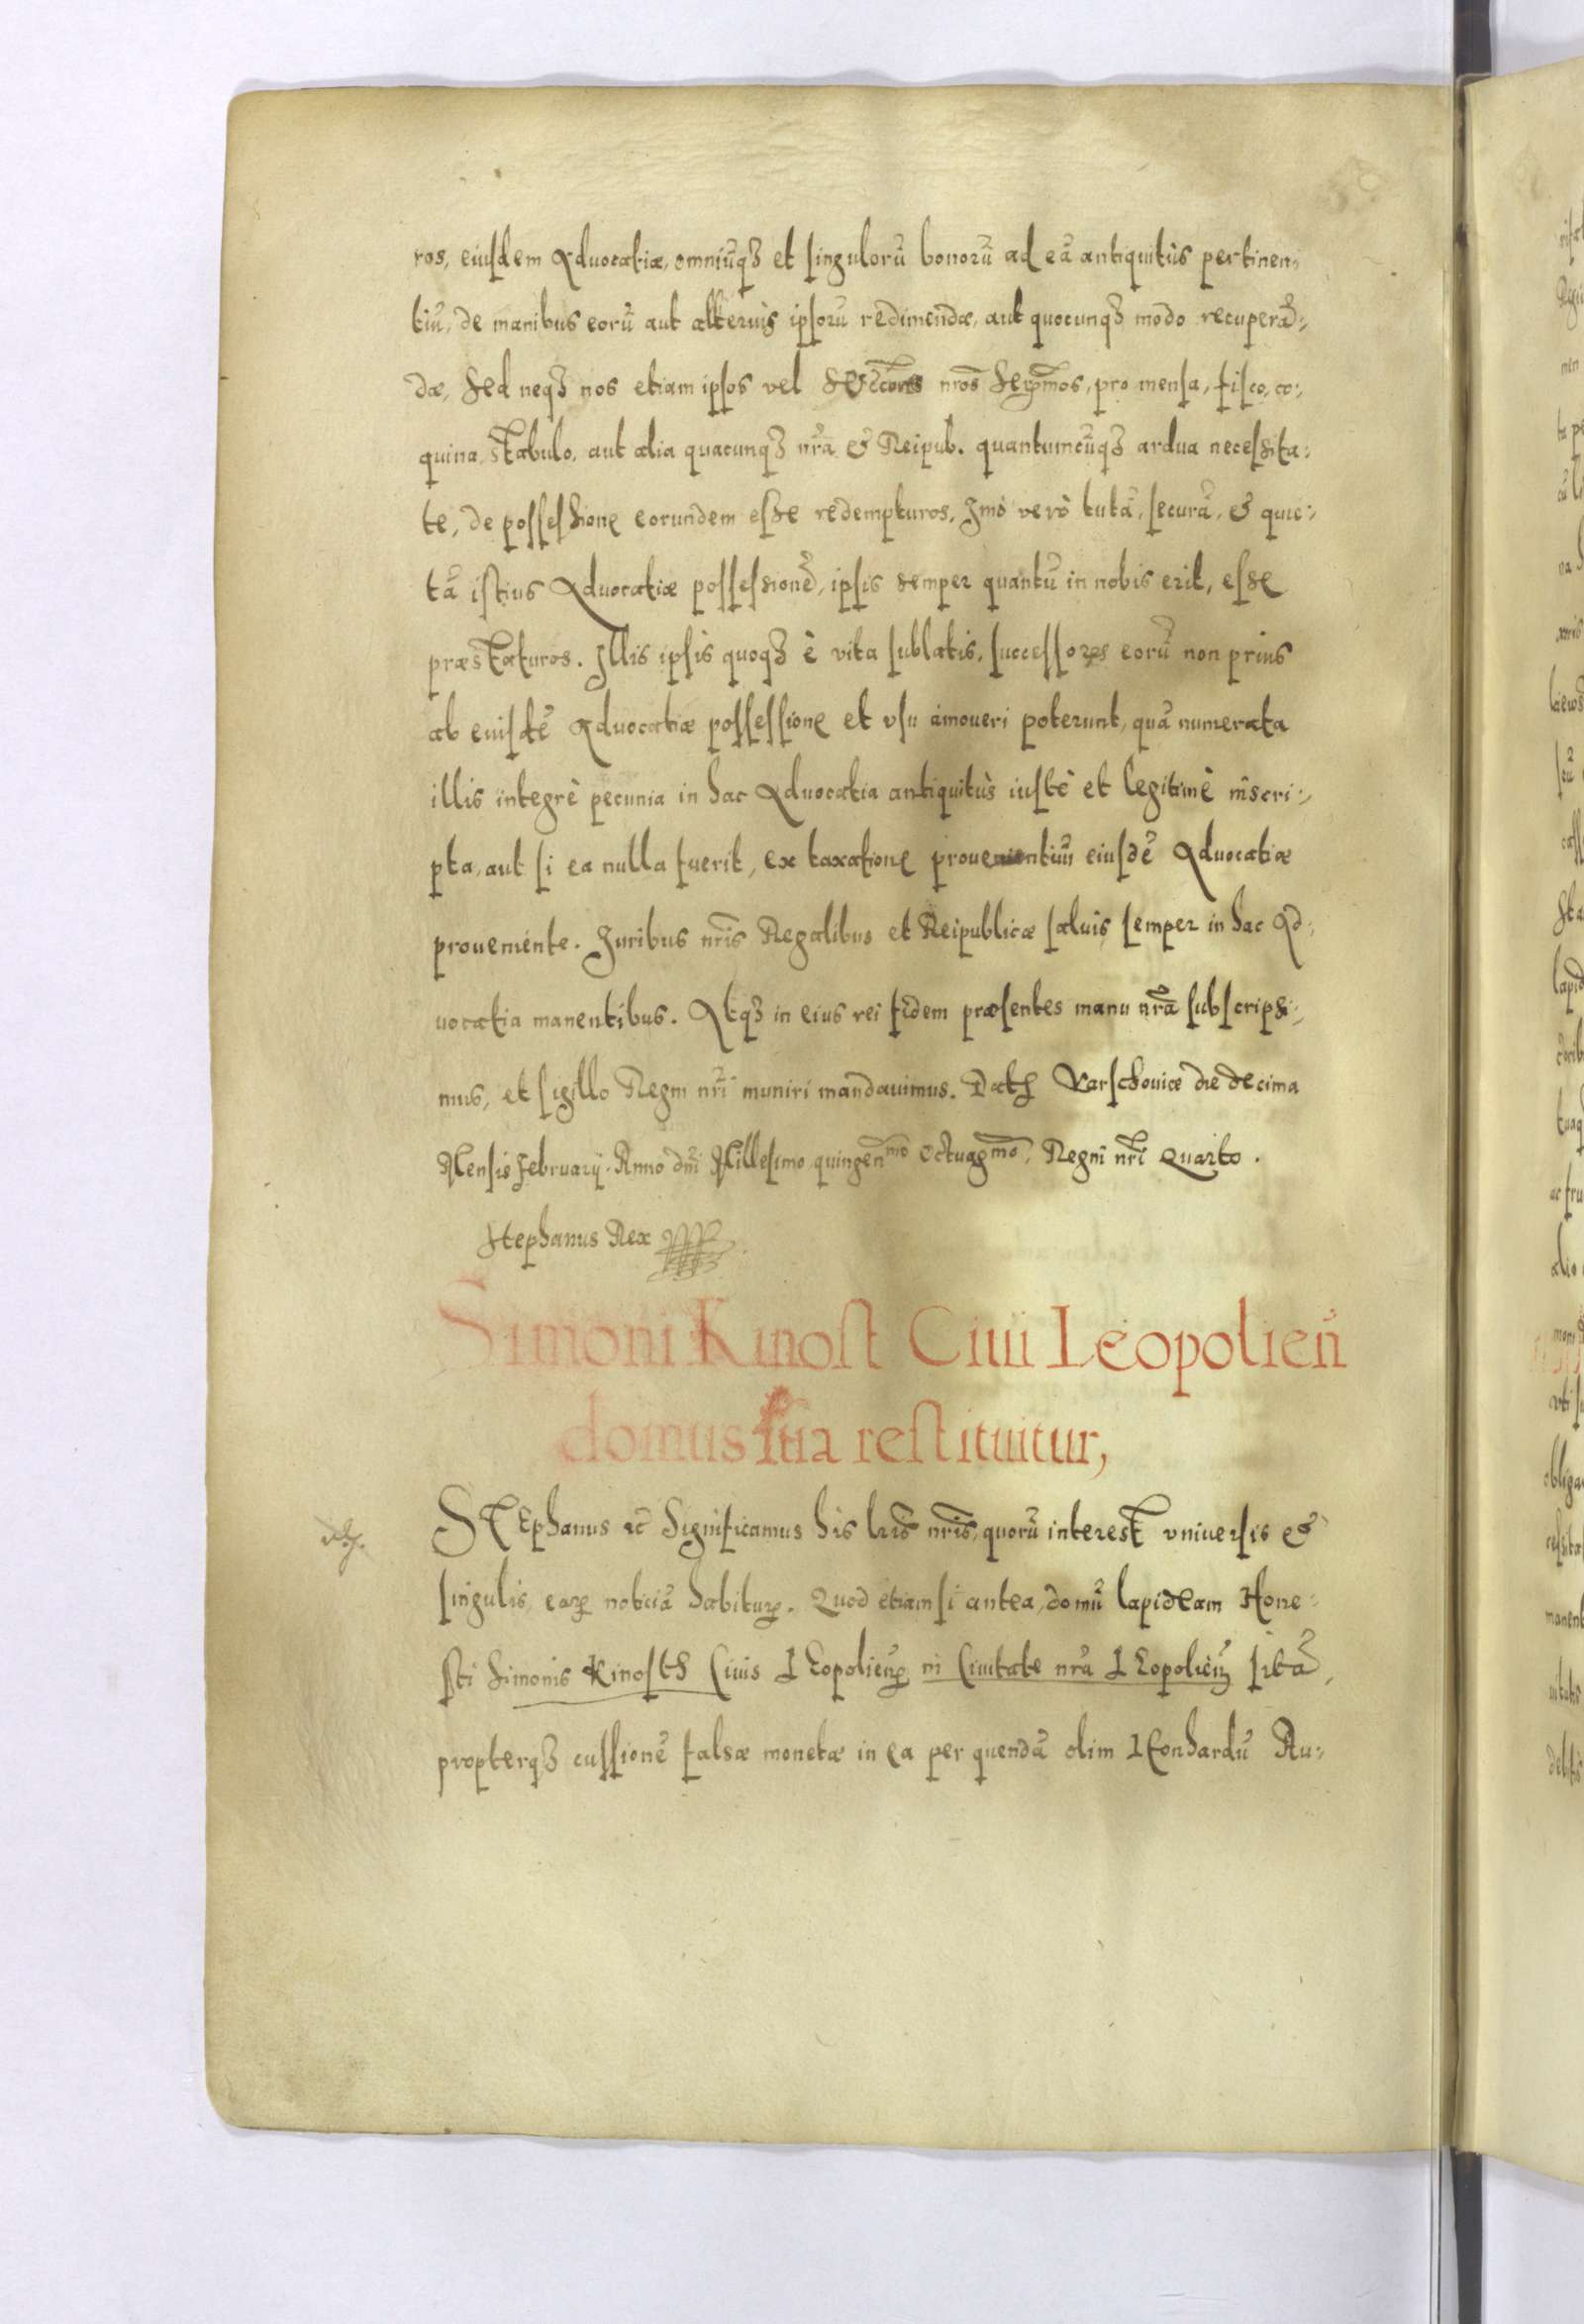 ros, eiusdem Aduocatiæ, omniūq₃ et singulorū bonorū ad eā antiquitùs pertinen⸗
tiū, de manibus eorū aut alterius ipsorū redimendæ, aut quocunq₃ modo recuperā⸗
dæ, sed neq₃ nos etiam ipsos vel nr̄os Ser̄mos, pro mensa, fisco, co⸗
quina, stabulo, aut alia quacunq₃ nr̄a & Reipub. quantumcūq₃ ardua necessita⸗
te, de possessione eorundem esse redempturos, Imò verò tutā, securā, & quie⸗
tā istius Aduocatiæ possessionē, ipsis semper quantū in nobis erit, esse
præstaturos. Illis ipsis quoq₃ è vita sublatis, successores eorū non prius
ab eiusdē Aduocatiæ possessione et vsu amoueri poterunt, quā numerata
illis integrè pecunia in hac Aduocatia antiquitùs iustè et legitimè inscri⸗
pta, aut si ea nulla fuerit, ex taxatione prouenientiū eiusdē Aduocatiæ
proueniente. Iuribus nr̄is Regalibus et Reipublicæ saluis semper in hac Ad⸗
uocatia manentibus. Atq₃ in eius rei fidem præsentes manu nr̄a subscripsi⸗
mus, et sigillo Regni nr̄i muniri mandauimus. Dat Varschouiæ die decima
Mensis February. Anno dn̄i Millesimo quingen̄mo octuagmo, Regni nr̄i Quarto.
Stephanus Rex
Simoni Kinost Ciui Leopolien̄
domus sua restituitur,
Stephanus ec̄ Significamus his lr̄is nr̄is, quorū interest vniuersis &
singulis, earꝝ noticiā habiturꝭ. Quod etiamsi antea, domū lapideam Hone⸗
sti Simonis Kinosth Ciuis Leopolien̄ in Ciuitate nr̄a Leopolien̄ sitā,
propterq₃ cussionē falsæ monetæ in ea per quendā olim Leonhardū Ru⸗